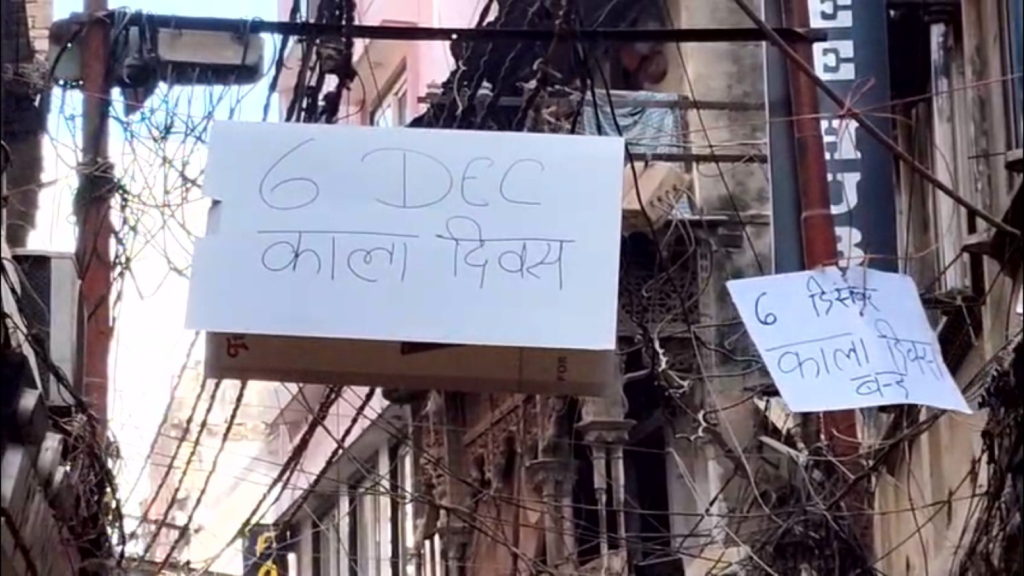 6 DEC
काला दिवस
6 डिसंबर
काला दिवस
बन्द
FOR